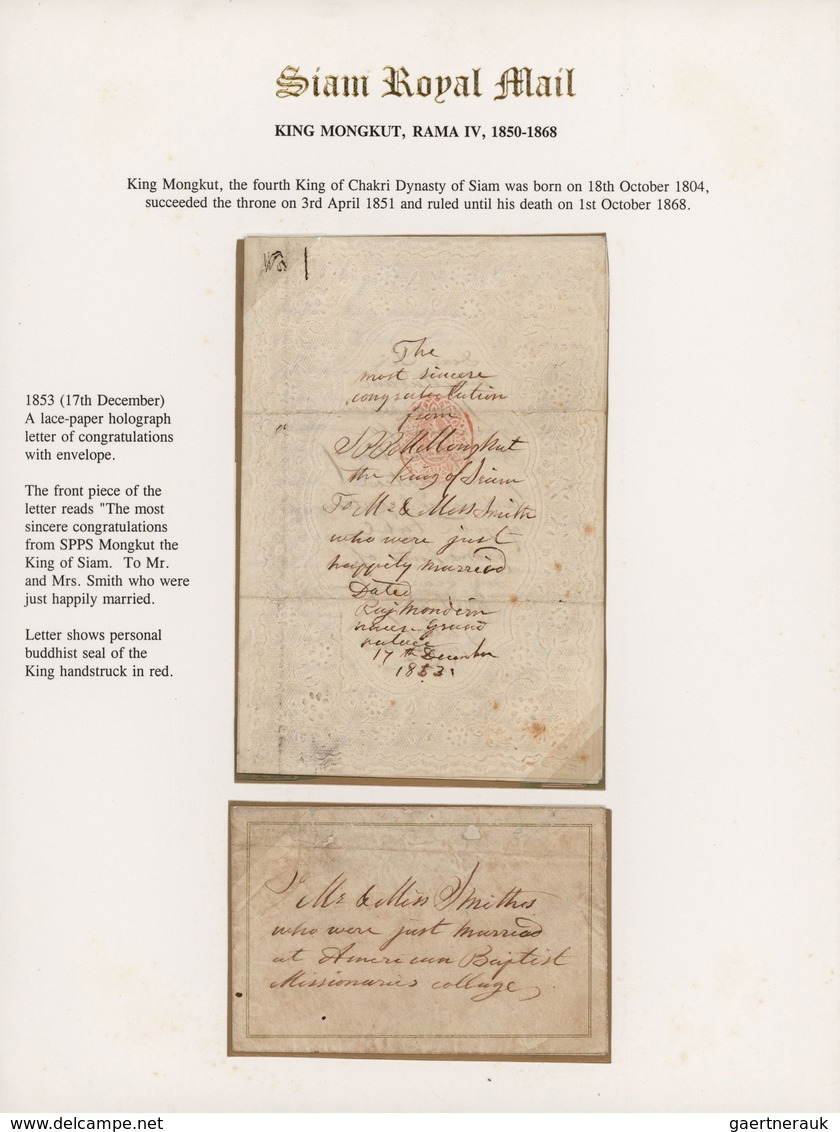 Siam Royal Mail
KING MONGKUT, RAMA IV, 1850-1868
King Mongkut, the fourth King of Chakri Dynasty of Siam was born on 18th October 1804,
succeeded the throne on 3rd April 1851 and ruled until his death on 1st October 1868.
1853 (17th December)
A lace-paper holograph
letter of congratulations
with envelope.
The front piece of the
letter reads "The most
sincere congratulations
from SPPS Mongkut the
King of Siam. To Mr.
and Mrs. Smith who were
just happily married.
Letter shows personal
buddhist seal of the
King handstruck in red.
The
most sincere
congratulation
from
Mongkut
the King of Siam
To Mr & Miss Smith
who were just
happily married
Dated
Raj Mondirn
Grand
palace
17th December
1853
To Mr & Miss Smithes
who were just married
at American Baptist
Missionaries collage
www.delcampe.net
gaertnerauk